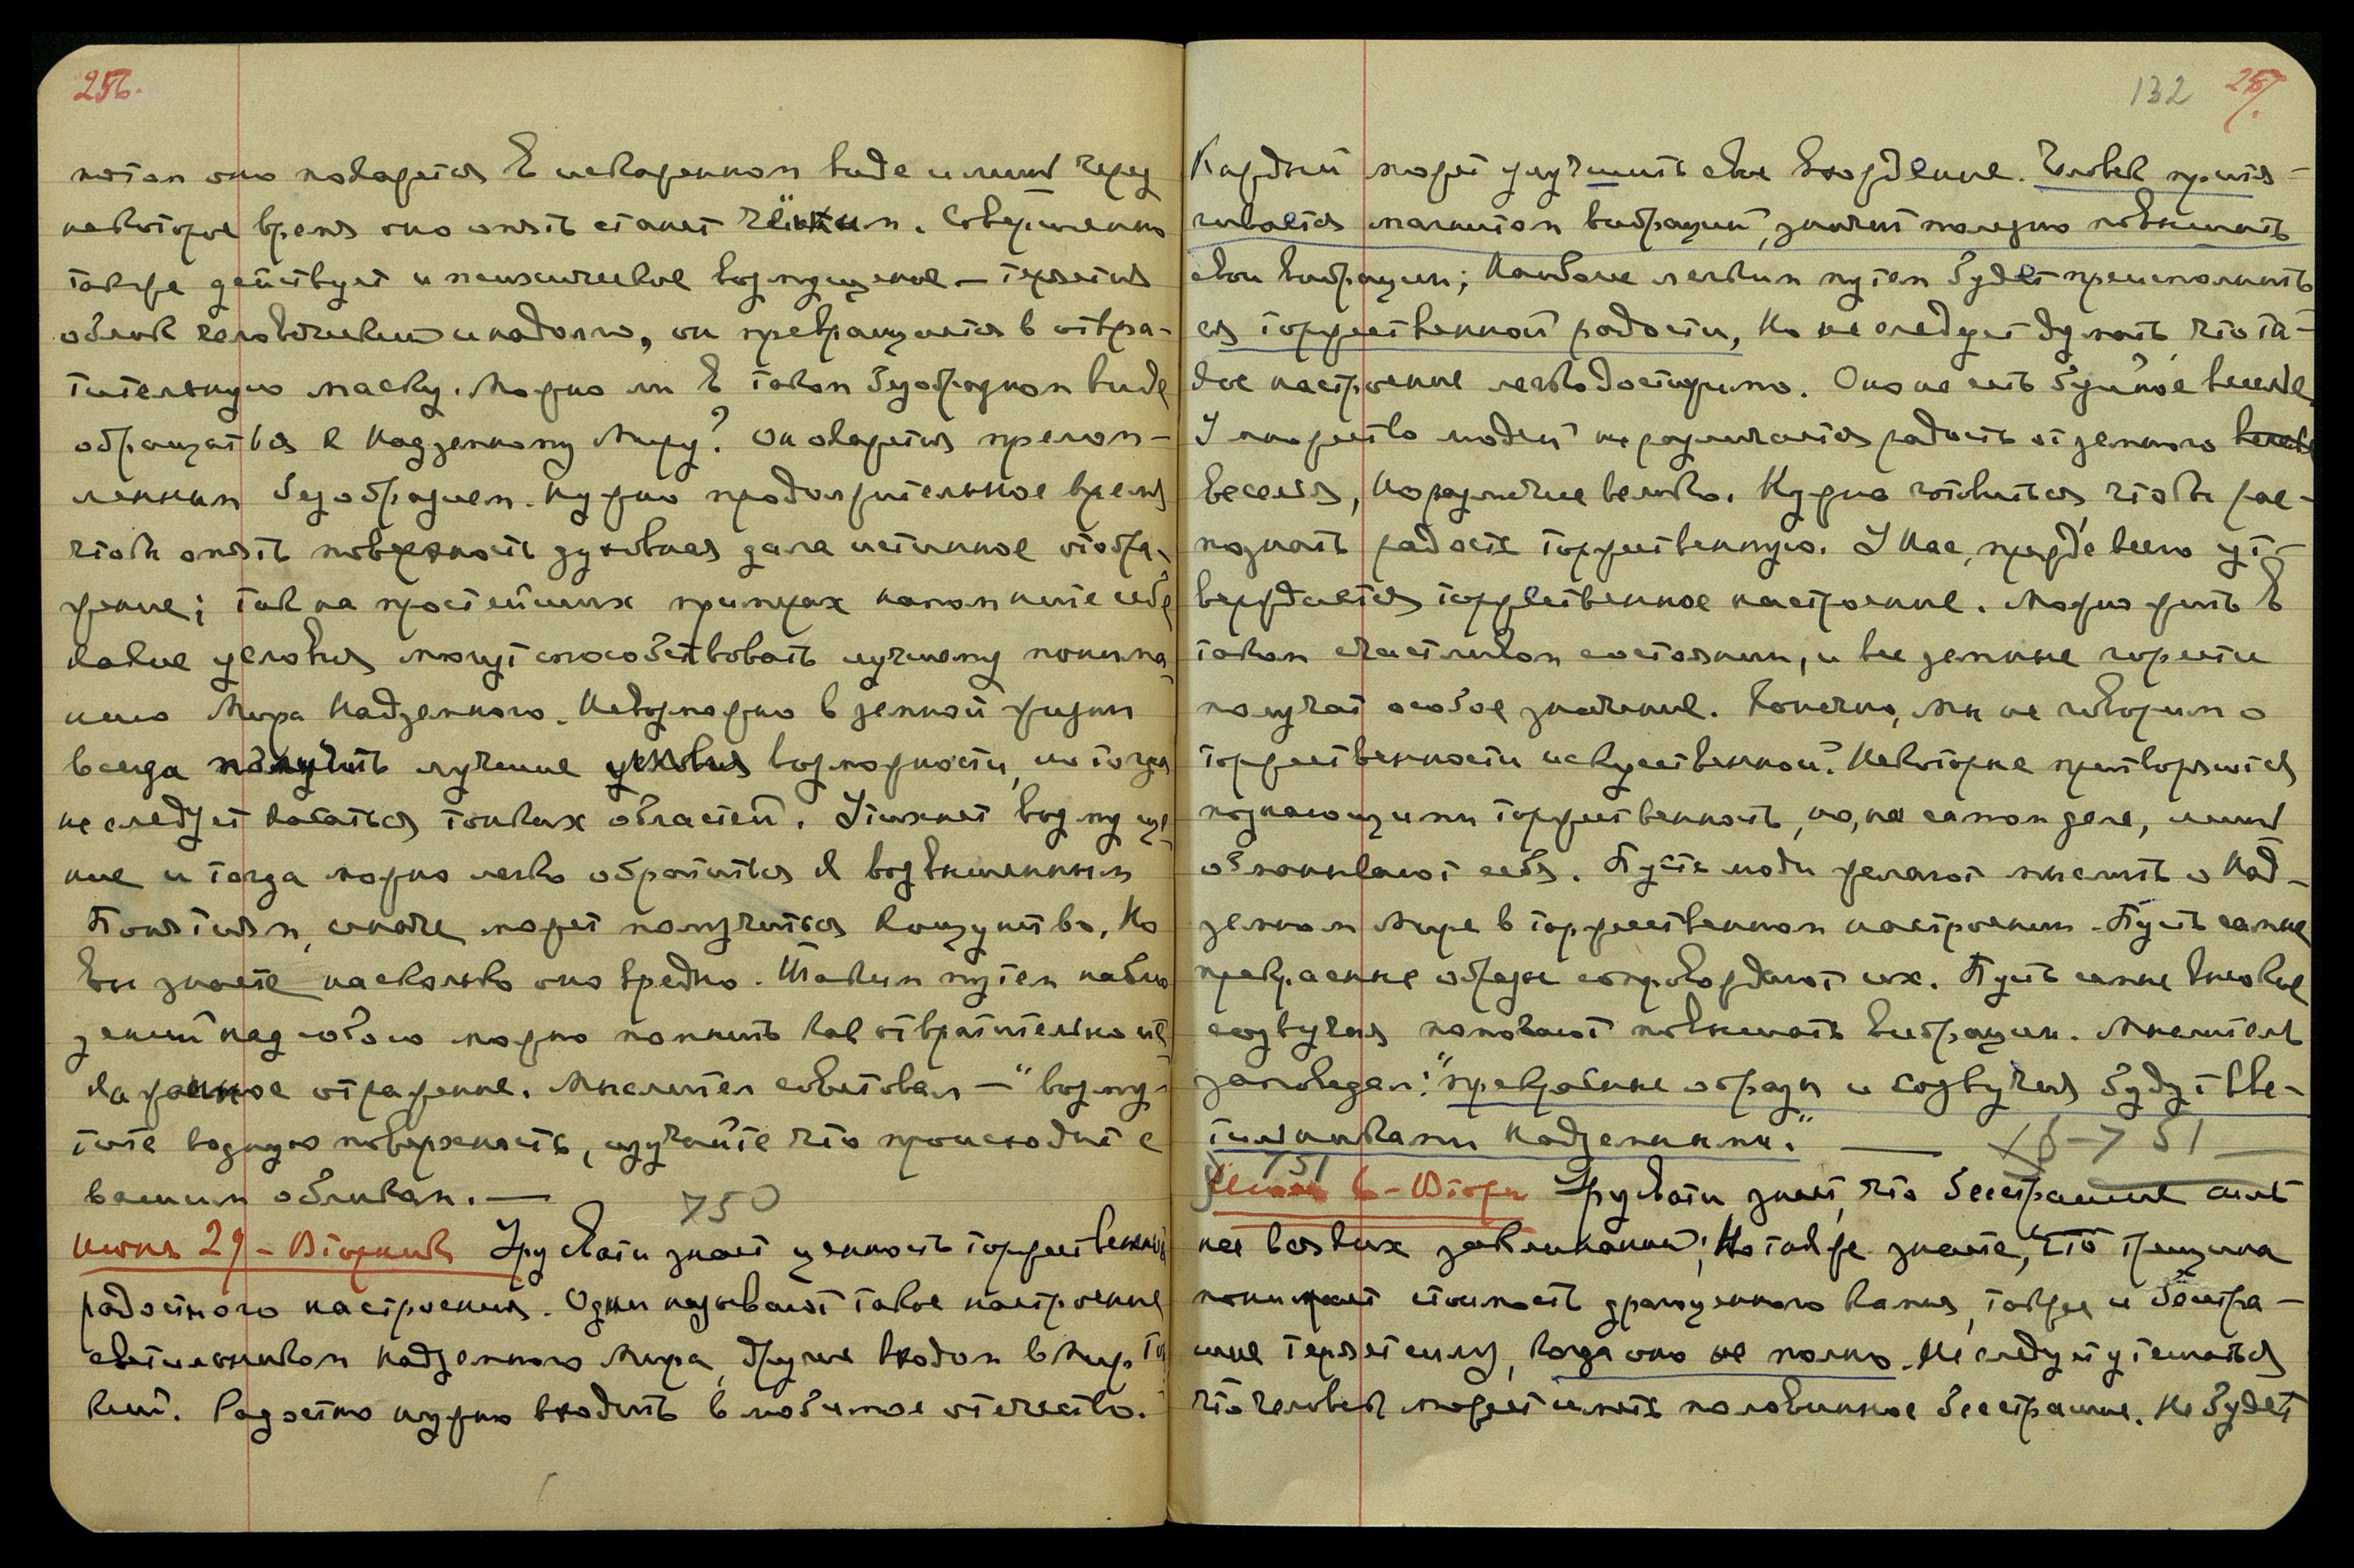 256.
потом оно покажется в искаженном виде и лишь через
некоторое время оно опять станет чётким. Совершенно
также действует и психическое возмущение — теряется
облик человеческий и надолго, он превращается в отвра-
тительную маску. Можно ли в таком безобразном виде
обращаться к Надземному Миру? Он окажется прелом-
ленным безобразием. Нужно продолжительное время
чтобы опять поверхность духовная дала истинное отобра-
жение; так на простейших примерах напомните себе
какие условия могут способствовать лучшему понима-
нию Мира Надземного. Невозможно в земной жизни
всегда получить лучшие условия возможности, но тогда
не следует касаться тонких областей. Утихнет возмуще-
ние и тогда можно легко обратиться к возвышенным
Понятиям, иначе может получиться кощунство, Но
вы знаете насколько оно вредно. Таким путем наблю-
дений над собою можно помнить как отвратительно ис-
каженное отражение. Мыслител советовал — "возму-
тите водную поверхность, изучайте что происходит с
вашим обликом. —
750
июня 29 - Вторник Урусвати знает ценность торжественно
радостного настроения. Одни называют такое настроение
светильником надземного Мира, другие входом в Мир Тон
кий. Радостно нужно входить в любимое отечество.
132 257.
Каждый может улучшить свое вхождение. Человек притя-
гивается магнитом вибраций, значит полезно повышать
свои вибрации; Наиболе легким путем будет преисполнить
ся торжественной радости, Но не следует думать что та-
кое настроение легко достижимо. Оно не есть буйное веселие
У множество людей не различается радость от земного весель
веселья, Но различие велико. Нужно готовиться чтобы рас-
познать радость торжественную. У Нас, прежде всего ут-
верждается торжественное настроение. Можно жить в
таком счастливом состоянии, и все земные горести
получат особое значение. Конечно, мы не говорим о
торжественности искусственной. Некоторые притворяются
познающими торжественность, но, на самом деле, лишь
обманывают себя. Пусть люди желают мыслить о Над-
земном Мире в торжественном настроении. Пусть самые
прекрасные образы сопровождают их. Пусть самые высокие
созвучия помогают повышать вибрации. Мыслитель
заповедал: "прекрасные образы и созвучия будут све-
тильниками надземными." —
751
6 - Вторн Урусвати знает, что бесстрашие есть
вне всяких заклинаний; Но также знаете, что трещина
понижает стоимость драгоценного камня, также и бесстра-
шие теряет силу, когда оно не полно. Не следует утешаться
что человек может иметь половинное бесстрашие. Не будет